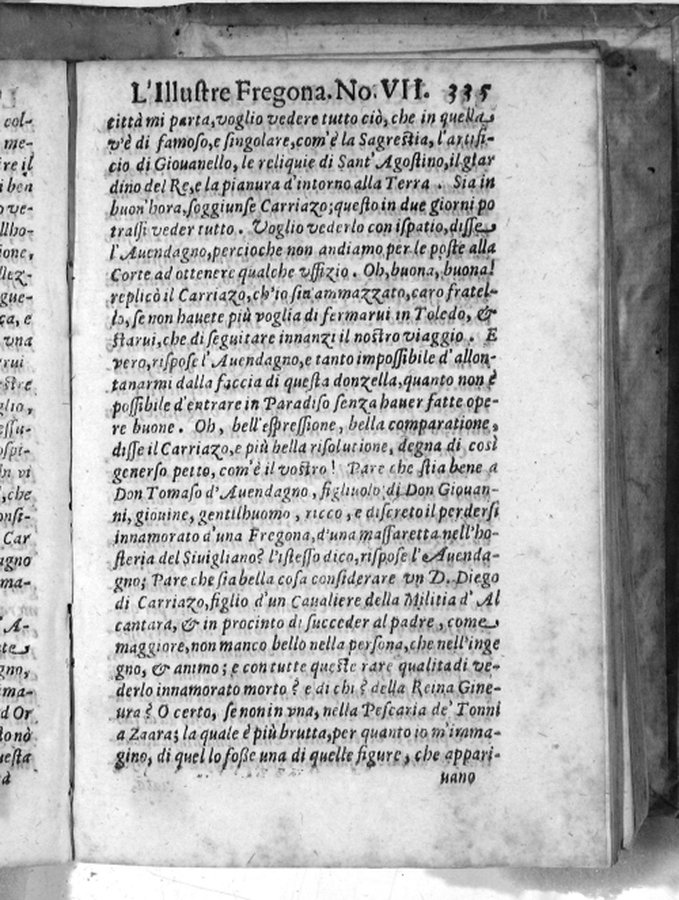 L'Illustre Fregona. No. VII. 335
città mi parta, voglio vedere tutto ciò, che in quella
v'è di famoso, e singolare, com'è la Sagrestia, l'artifi-
cio di Giouanello, le reliquie di Sant'Agostino, il giar
dino del Re, e la pianura d'intorno alla Terra. Sia in
buon'hora, soggiunse Carriazo; questo in due giorni po
trassi veder tutto. Voglio vederlo con ispatio, disse
l'Auendagno, percioche non andiamo per le poste alla
Corte ad ottenere qualche vffizio. Oh, buona, buona!
replicò il Carriazo, ch'io sia ammazzato, caro fratel-
lo, se non hauete più voglia di fermarui in Toledo, &
starui, che di seguitare innanzi il nostro viaggio. E
vero, rispose l'Auendagno, e tanto impossibile d'allon-
tanarmi dalla faccia di questa donzella, quanto non è
possibile d'entrare in Paradiso senza hauer fatte ope-
re buone. Oh, bell'espressione, bella comparatione,
disse il Carriazo, e più bella risolutione, degna di così
generso petto, com'è il vostro! Pare che stia bene a
Don Tomaso d'Auendagno, figliuolo di Don Giouan-
ni, giouine, gentilhuomo, ricco, e discreto il perdersi
innamorato d'una Fregona, d'una massaretta nell'ho-
steria del Siuigliano? l'istesso dico, rispose l'Auenda-
gno; Pare che sia bella cosa considerare vn D. Diego
di Carriazo, figlio d'un Caualiere della Militia d'Al
cantara, & in procinto di succeder al padre, come
maggiore, non manco bello nella persona, che nell'inge
gno, & animo; e con tutte queste rare qualità di ve-
derlo innamorato morto? e di chi? della Reina Gine-
ura? O certo, se non in vna, nella Pescaria de' Tonni
a Zaara; la quale è più brutta, per quanto io m'imma-
gino, di quel lo fosse una di quelle figure, che appari-
uano
col-
me-
ire il
i ben
ve-
llho-
ione,
llez-
gue-
ca, e
una
rui
estre
glio,
essu-
ospi-
in vi
, che
onsi-
Car
agno
ma-
A-
gno,
ima-
d Or
uesta